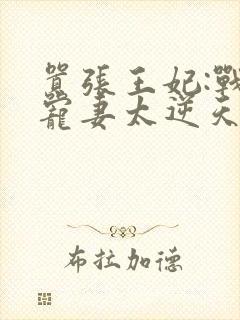 囂張王妃:戰
寵妻太逆天
布拉加德